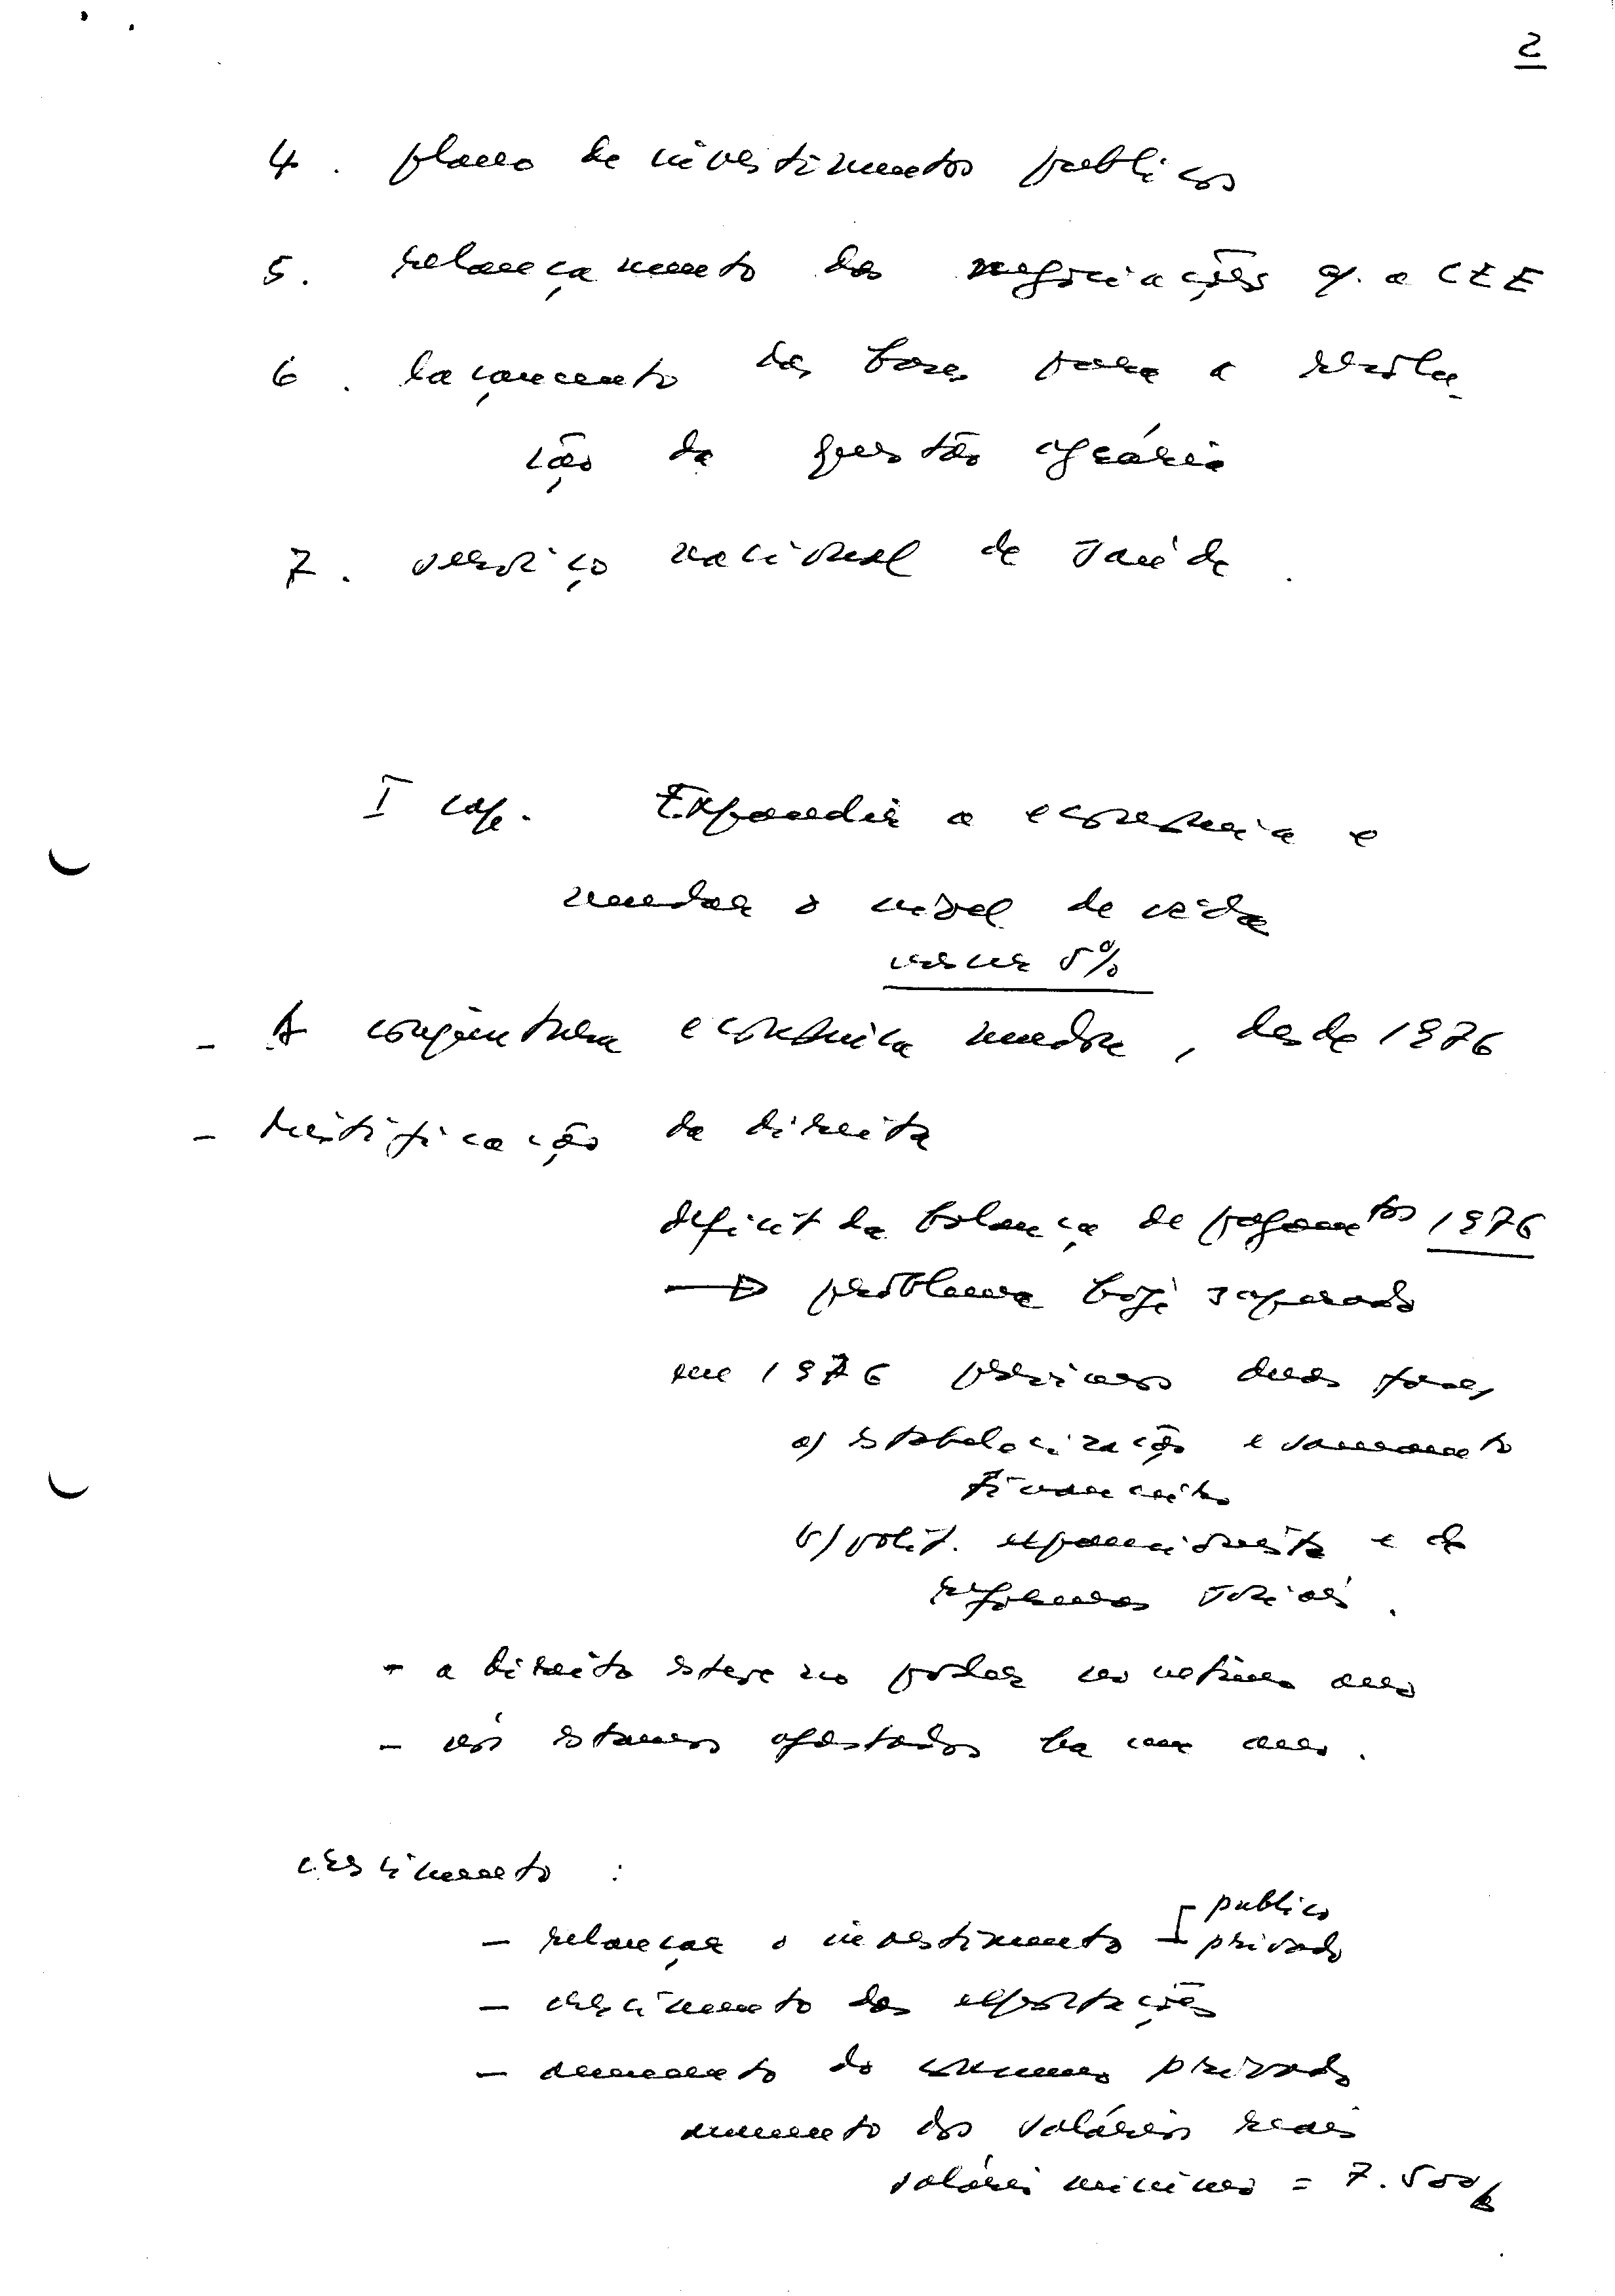 2
4. plano de investimentos publicos
5. relançamento das negociações c/ a CEE
6. lançamento das bases para a resolu-
ção da questão agrária
7. serviço nacional de saúde.
I cap. Expandir a economia e
mudar o nivel de vida
5%
- A conjuntura economica mudou, desde 1976
- Mistificação da direita
deficit da balança de pagamentos 1976
→ problema hoje superado
em 1976 previamos duas fases
a) estabelecização e saneamento
financeiro
b) polit. expancionista e de
reformas sociais.
- a direita esteve no poder no ultimo ano
- nós estamos afastados ha um ano.
crescimento :
- relançar o investimento publico
privado
- crescimento das exportações
- aumento do consumo privado
aumento dos salários reais
salário minimo = 7.500$